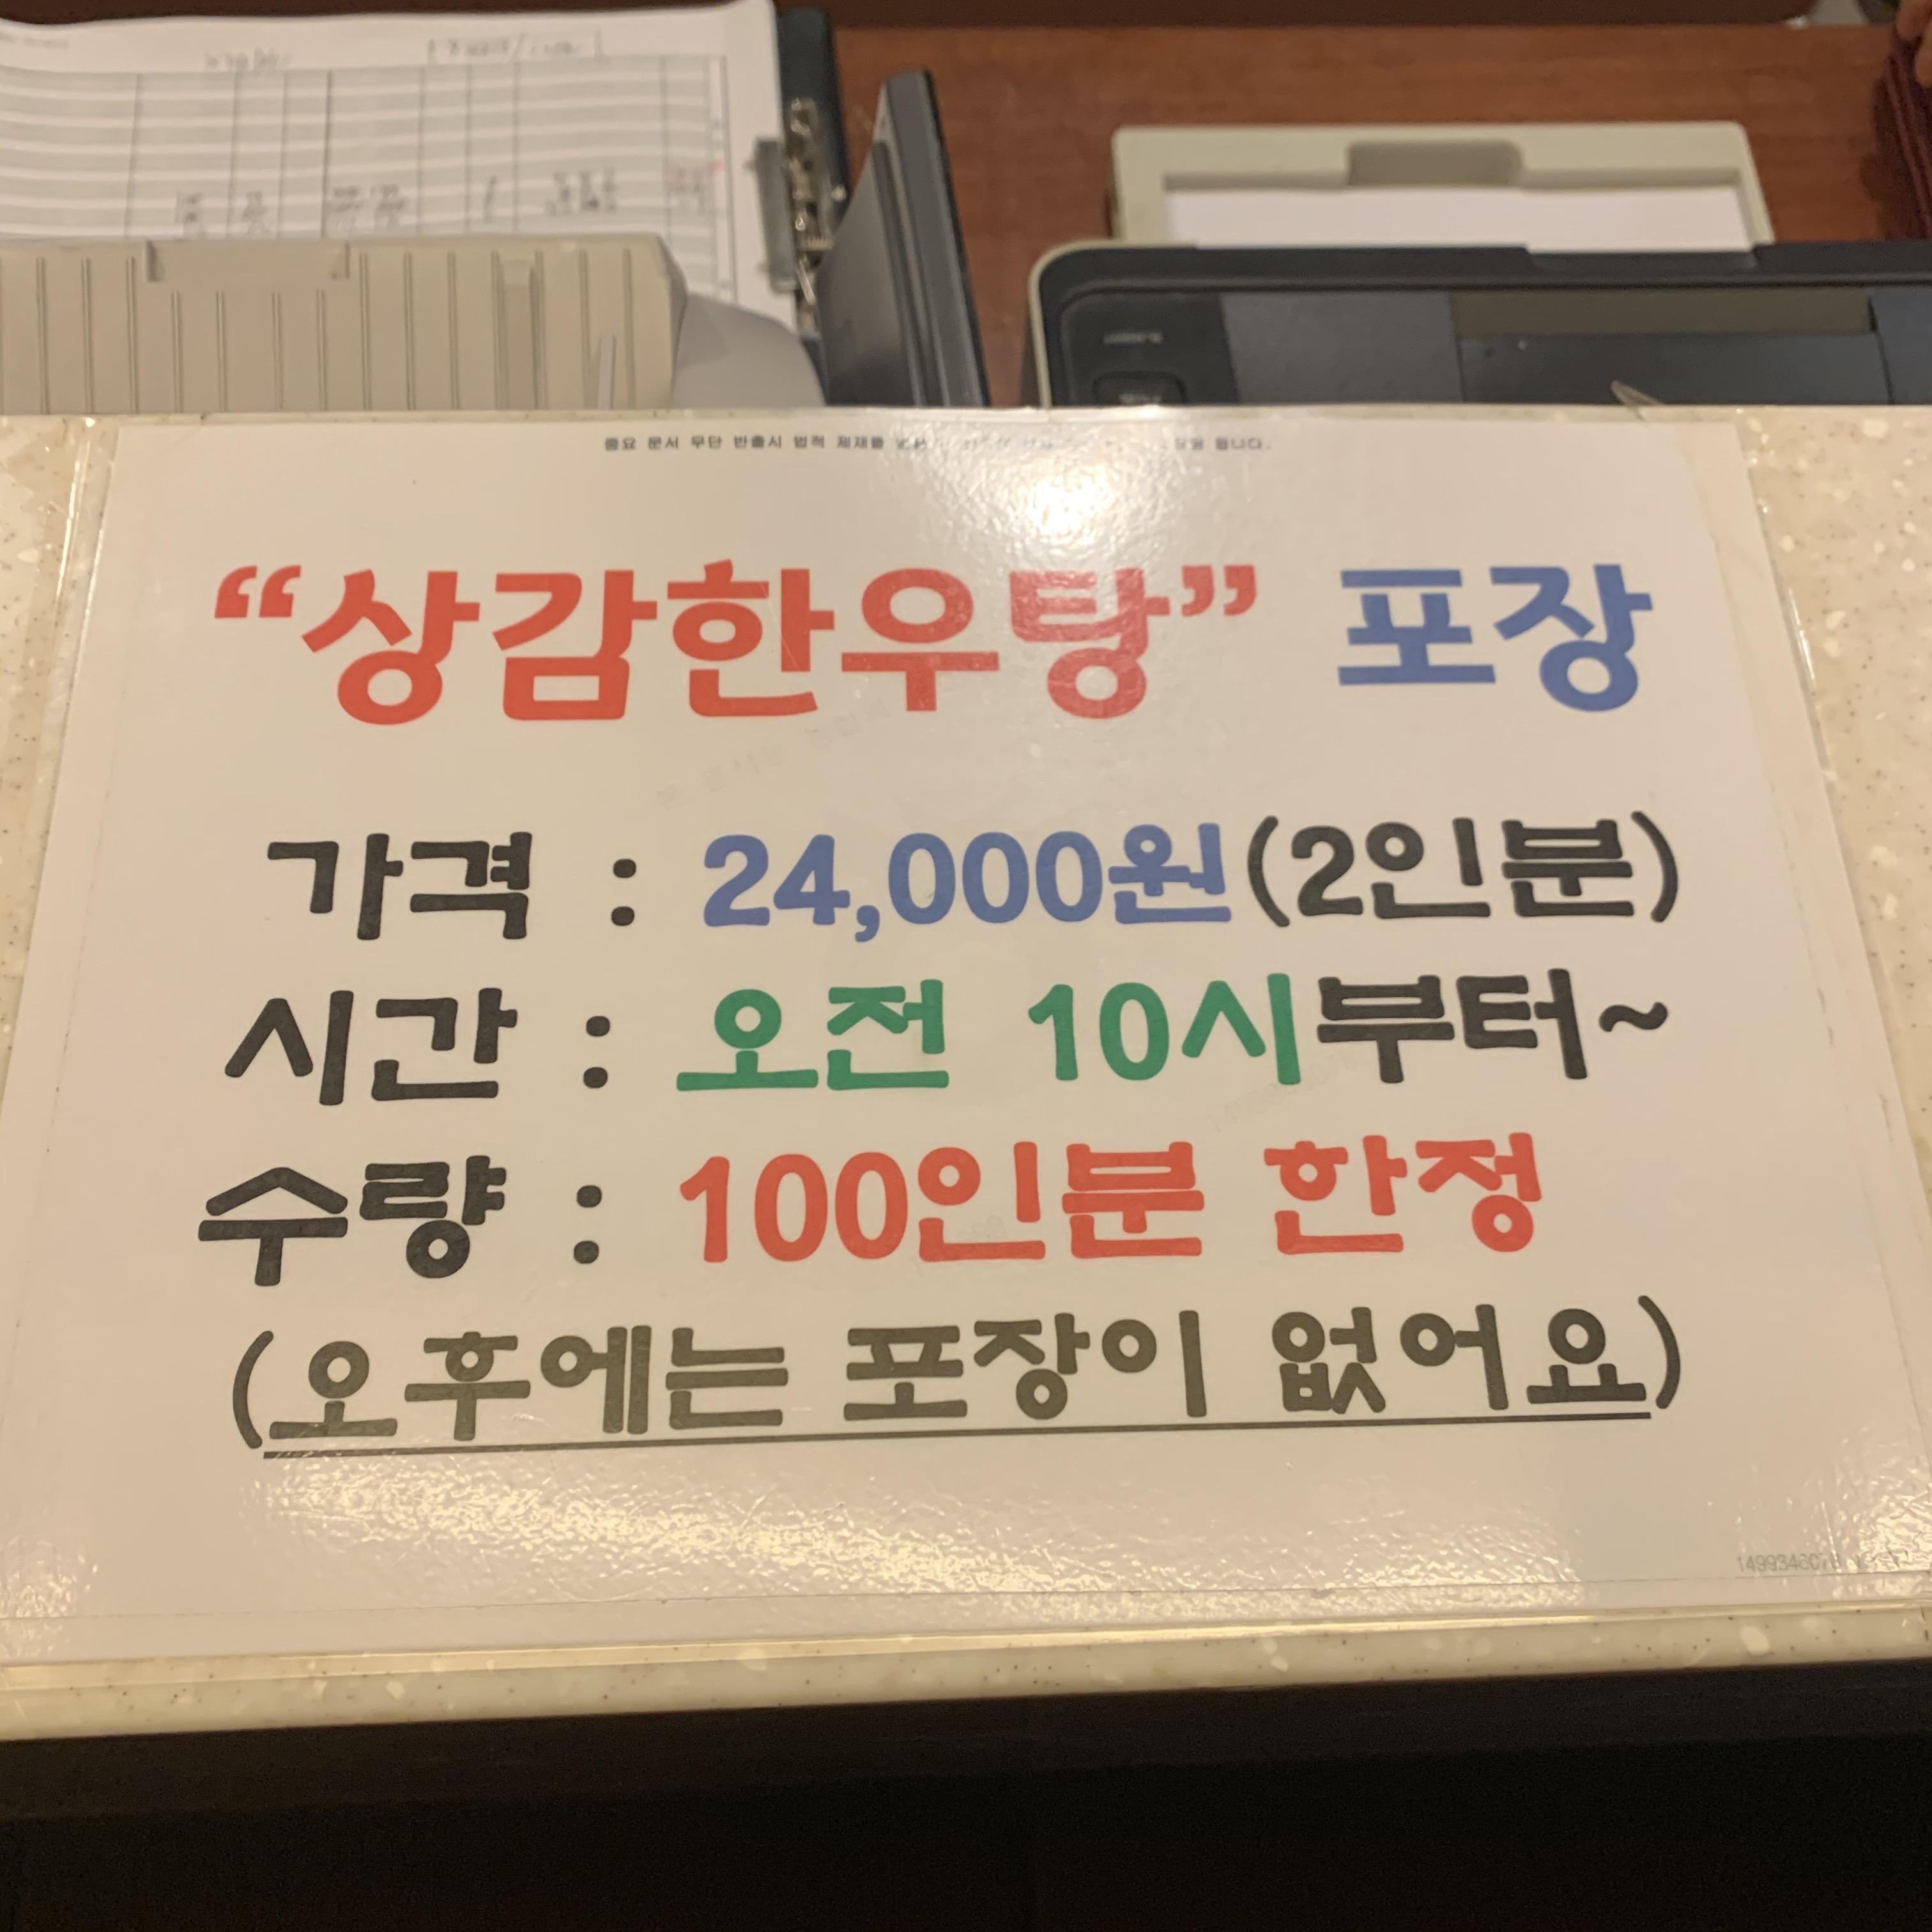 중요 문서 무단 반출시 법적 제재를
됩니다.
“상감한우탕” 포장
가격 : 24,000원(2인분)
시간 : 오전 10시부터~
수량 : 100인분 한정
(오후에는 포장이 없어요)